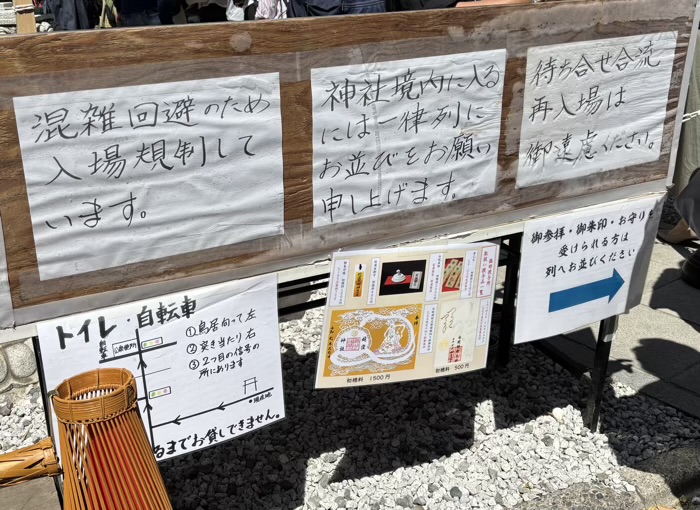 混雑回避のため
入場規制して
います。
神社境内に入る
には一律列に
お並びをお願い
申し上げます。
待ち合せ合流
再入場は
御遠慮ください。
トイレ・自転車
①鳥居向って左
②突き当たり右
③2つ目の信号の
所にあります
現在地
るまでお貸しできません。
初穂料 1500円
初穂料 500円
御参拝・御朱印・お守りを
受けられる方は
列へお並びください